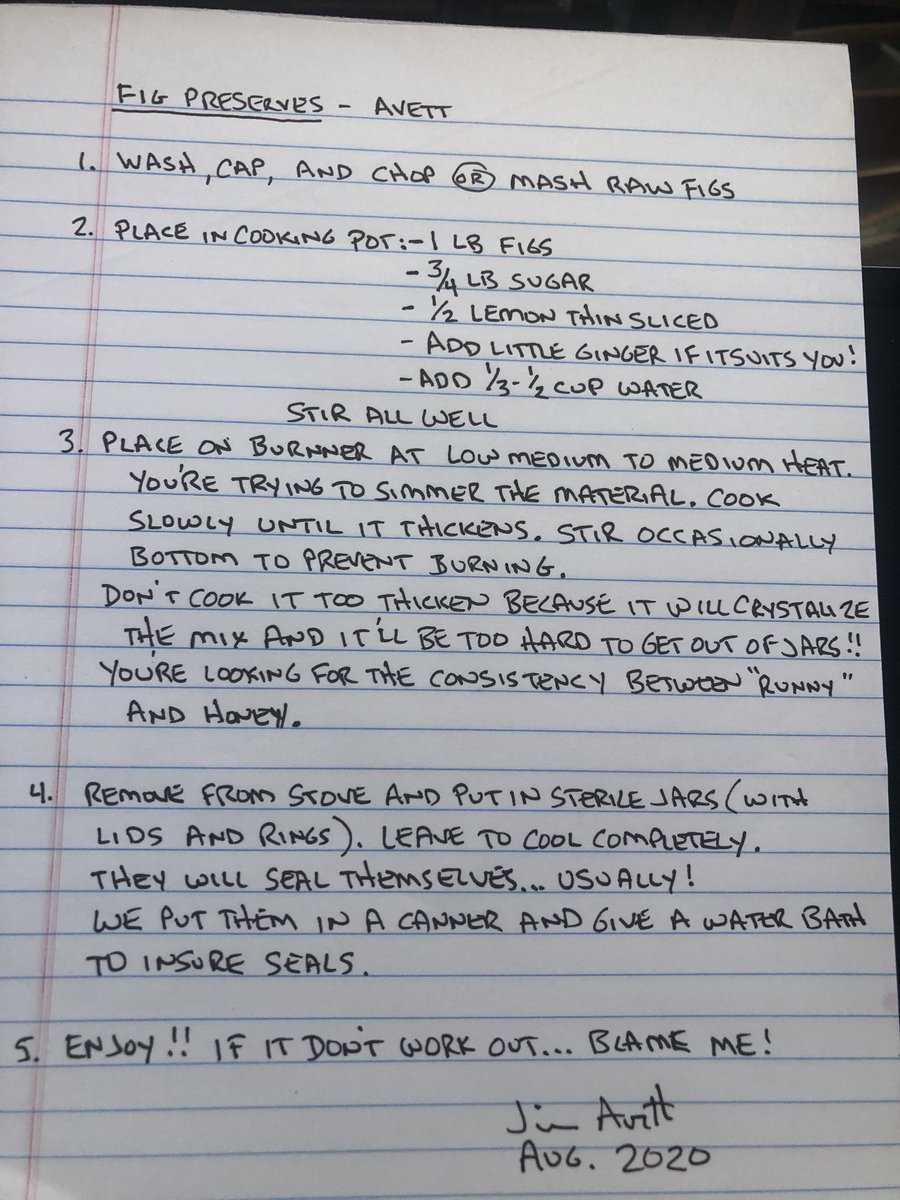 FIG PRESERVES - AVETT
1. WASH, CAP, AND CHOP OR MASH RAW FIGS
2. PLACE IN COOKING POT: - 1 LB FIGS
- 3/4 LB SUGAR
- 1/2 LEMON THIN SLICED
- ADD LITTLE GINGER IF IT SUITS YOU!
- ADD 1/3 - 1/2 CUP WATER
STIR ALL WELL
3. PLACE ON BURNNER AT LOW MEDIUM TO MEDIUM HEAT.
YOU'RE TRYING TO SIMMER THE MATERIAL. COOK
SLOWLY UNTIL IT THICKENS. STIR OCCASIONALLY
BOTTOM TO PREVENT BURNING.
DON'T COOK IT TOO THICKEN BECAUSE IT WILL CRYSTALIZE
THE MIX AND IT'LL BE TOO HARD TO GET OUT OF JARS!!
YOU'RE LOOKING FOR THE CONSISTENCY BETWEEN "RUNNY"
AND HONEY.
4. REMOVE FROM STOVE AND PUT IN STERILE JARS (WITH
LIDS AND RINGS). LEAVE TO COOL COMPLETELY.
THEY WILL SEAL THEMSELVES... USUALLY!
WE PUT THEM IN A CANNER AND GIVE A WATER BATH
TO INSURE SEALS.
5. ENJOY!! IF IT DON'T WORK OUT... BLAME ME!
Jim Avett
AUG. 2020